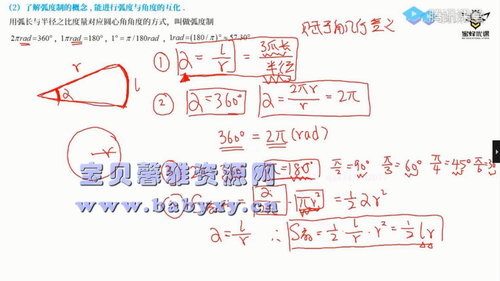 (2) 了解弧度制的概念,能进行弧度与角度的互化.
用弧长与半径之比度量对应圆心角角度的方式,叫做弧度制
2πrad=360°, 1πrad=180°, 1°=π/180rad, 1rad=(180/π)°≈57.30°
腾讯课堂
蜜蜂优课
① α = l/r = 弧长/半径
r α l
② α=360° α = 2πr/r = 2π
r
360° = 2π (rad)
=180° π/2=90° π/3=60° π/4=45° π/6=30°
宝贝馨雅资源网
www.babyxy.cn
α · πr² = ½αr²
α = l/r ∴ S扇 = ½ l/r · r² = ½ lr